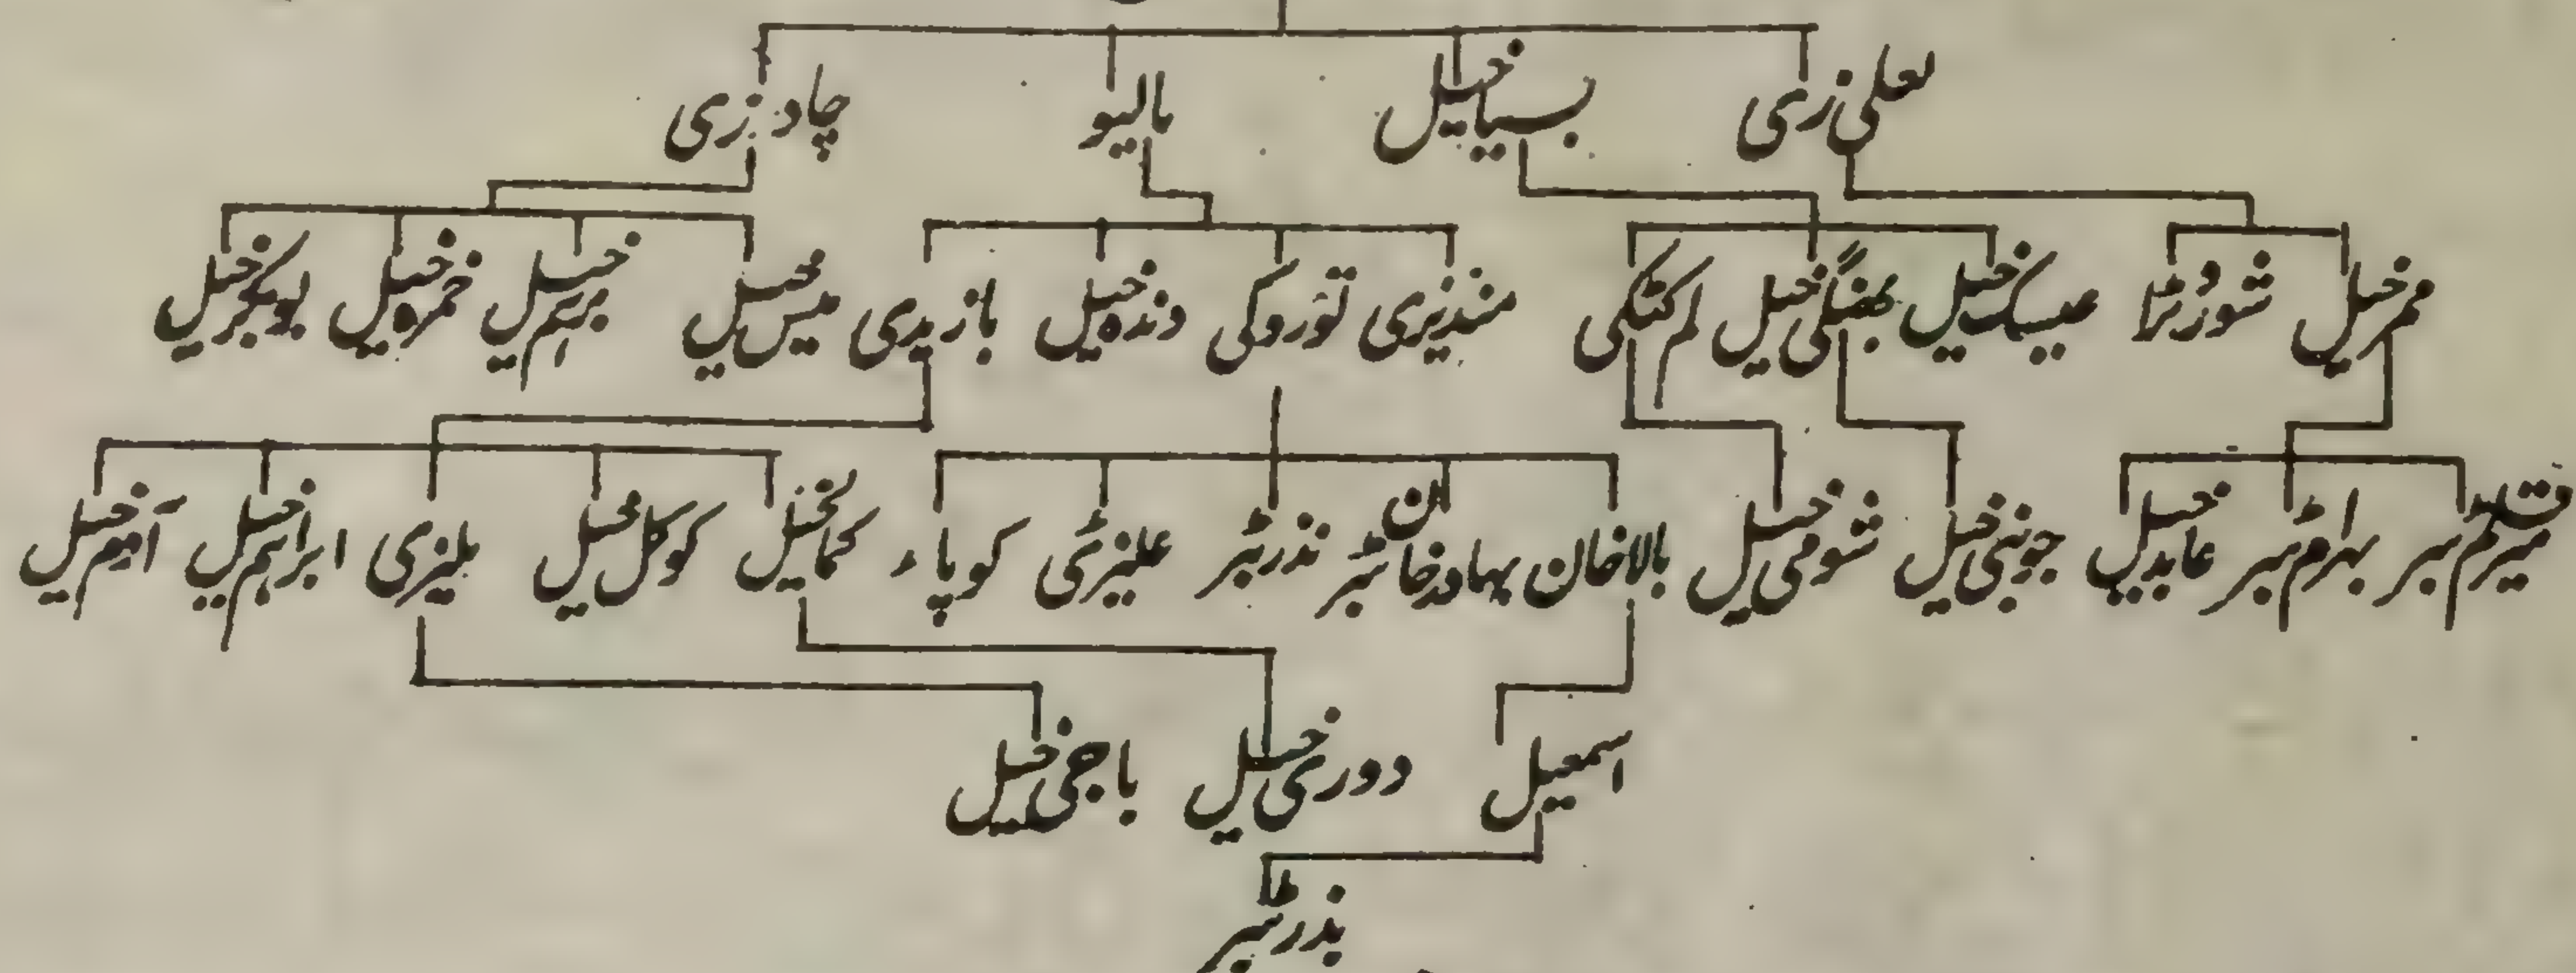 لعلی زی بسیاخیل مالیو چادرزی
ممرخیل شورُٹا عیسکخیل بھنگی خیل لم کٹکی منذیزی توروکی وندہ خیل بازیدی میس خیل برہم خیل خمزہ خیل بوبکرخیل
میرقلم ٹبر بہرام ٹبر عابدخیل جونبی خیل شومی خیل بالاخان بہادرخان ٹبر نذرٹبر علیزئی کوپاء کمالخیل کوکل خیل بلیزی ابراہم خیل آدیم خیل
اسمعیل دوری خیل باجی خیل
بذرٹبر